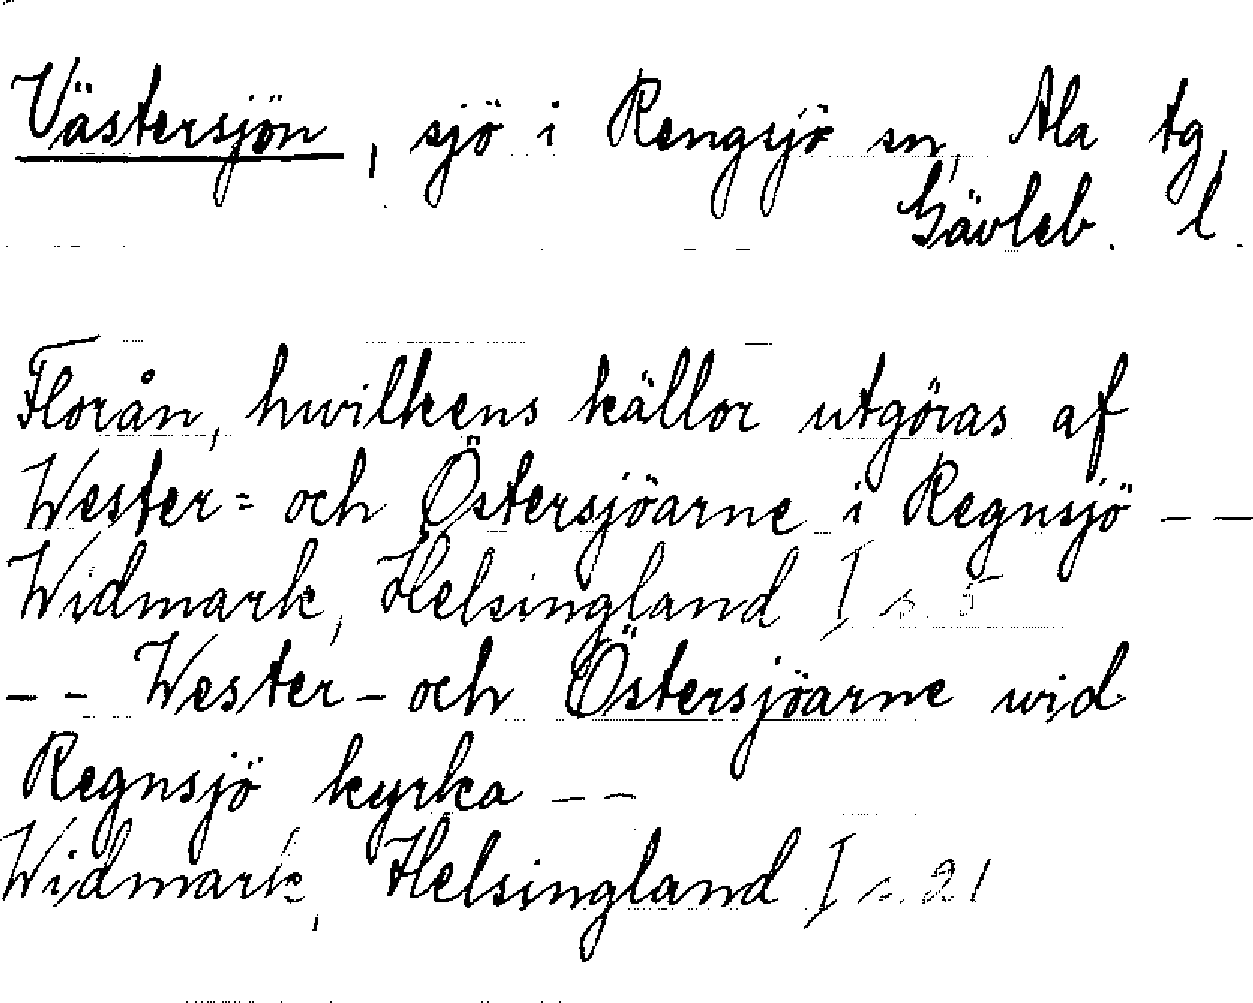 Västersjön, sjö i Rengsjö sn, Ala tg,
Gävleb. l.
Florån, hwilkens källor utgöras af
Wester= och Östersjöarne i Regnsjö – –
Widmark, Helsingland I s. 5
– – Wester- och Östersjöarne wid
Regnsjö kyrka – –
Widmark, Helsingland I s. 21